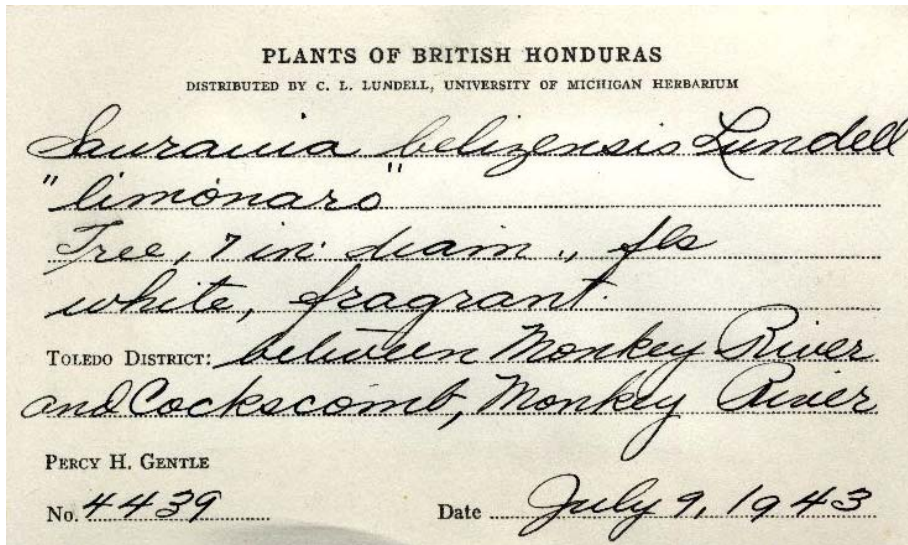 PLANTS OF BRITISH HONDURAS
DISTRIBUTED BY C. L. LUNDELL, UNIVERSITY OF MICHIGAN HERBARIUM
Saurauia belizensis Lundell
"limonaro"
Tree, 7 in. diam., fls
white, fragrant.
TOLEDO DISTRICT: between Monkey River
and Cockscomb, Monkey River
PERCY H. GENTLE
No. 4439 Date July 9, 1943